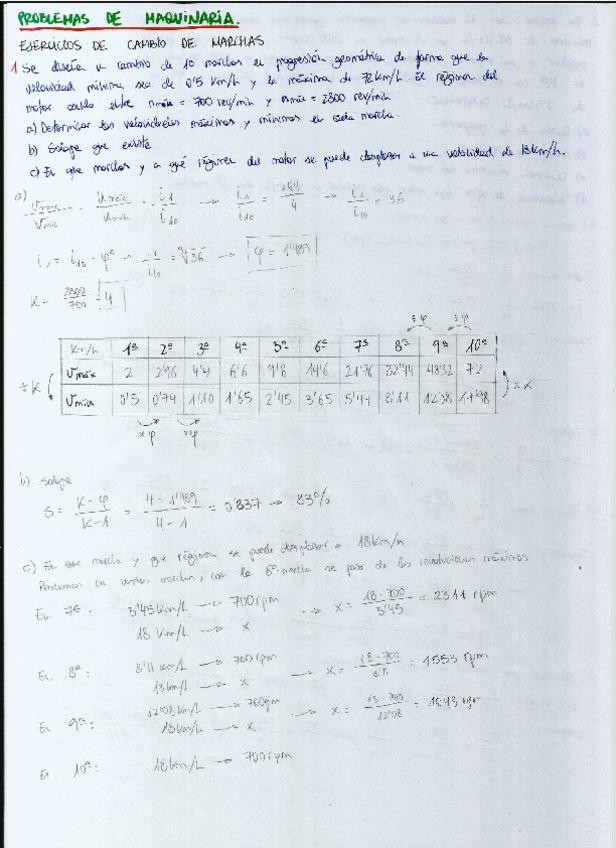 PROBLEMAS DE MAQUINARIA.
EJERCICIOS DE CAMBIO DE MARCHAS
1 Se diseña un cambio de 10 marchas en progresión geométrica de forma que la
velocidad mínima sea de 0'5 km/h y la máxima de 72 km/h. El régimen del
motor oscila entre nmín = 700 rev/min y nmáx = 2800 rev/min
a) Determinar las velocidades máximas y mínimas en cada marcha.
b) Solape que existe
c) En que marchas y a qué régimen del motor se puede desplazar a una velocidad de 18 km/h.
a) Vmáx / Vmín = nmáx / nmín · i1 / i10 → i1 / i10 = 144 / 4 → i1 / i10 = 36
i1 = i10 · φ⁹ → i1 / i10 = ⁹√36 → φ = 1'489
K = 2800 / 700 = 4
÷φ ÷φ
Km/h 1ª 2ª 3ª 4ª 5ª 6ª 7ª 8ª 9ª 10ª
÷K Vmáx 2 2'96 4'4 6'6 9'8 14'6 21'76 32'44 48'32 72 xK
Vmín 0'5 0'74 1'10 1'65 2'45 3'65 5'44 8'11 12'08
xφ xφ
b) Solape
S = K - φ / K - 1 = 4 - 1'489 / 4 - 1 = 0'837 → 83%
c) En que marcha y que régimen se puede desplazar a 18 km/h
con varias marchas, con la 6ª marcha se pasa de las revoluciones máximas
En 7ª: 5'45 km/h → 700 rpm → x = 18 · 700 / 5'45 = 2311 rpm
18 km/h → x
En 8ª: 8'11 km/h → 700 rpm → x = 18 · 700 / = 1553 rpm
18 km/h → x
12'08 km/h → 700 rpm → x = 18 · 700 / 12'08 = rpm
En 9ª: 18 km/h → x
En 10ª: 18 km/h → 700 rpm